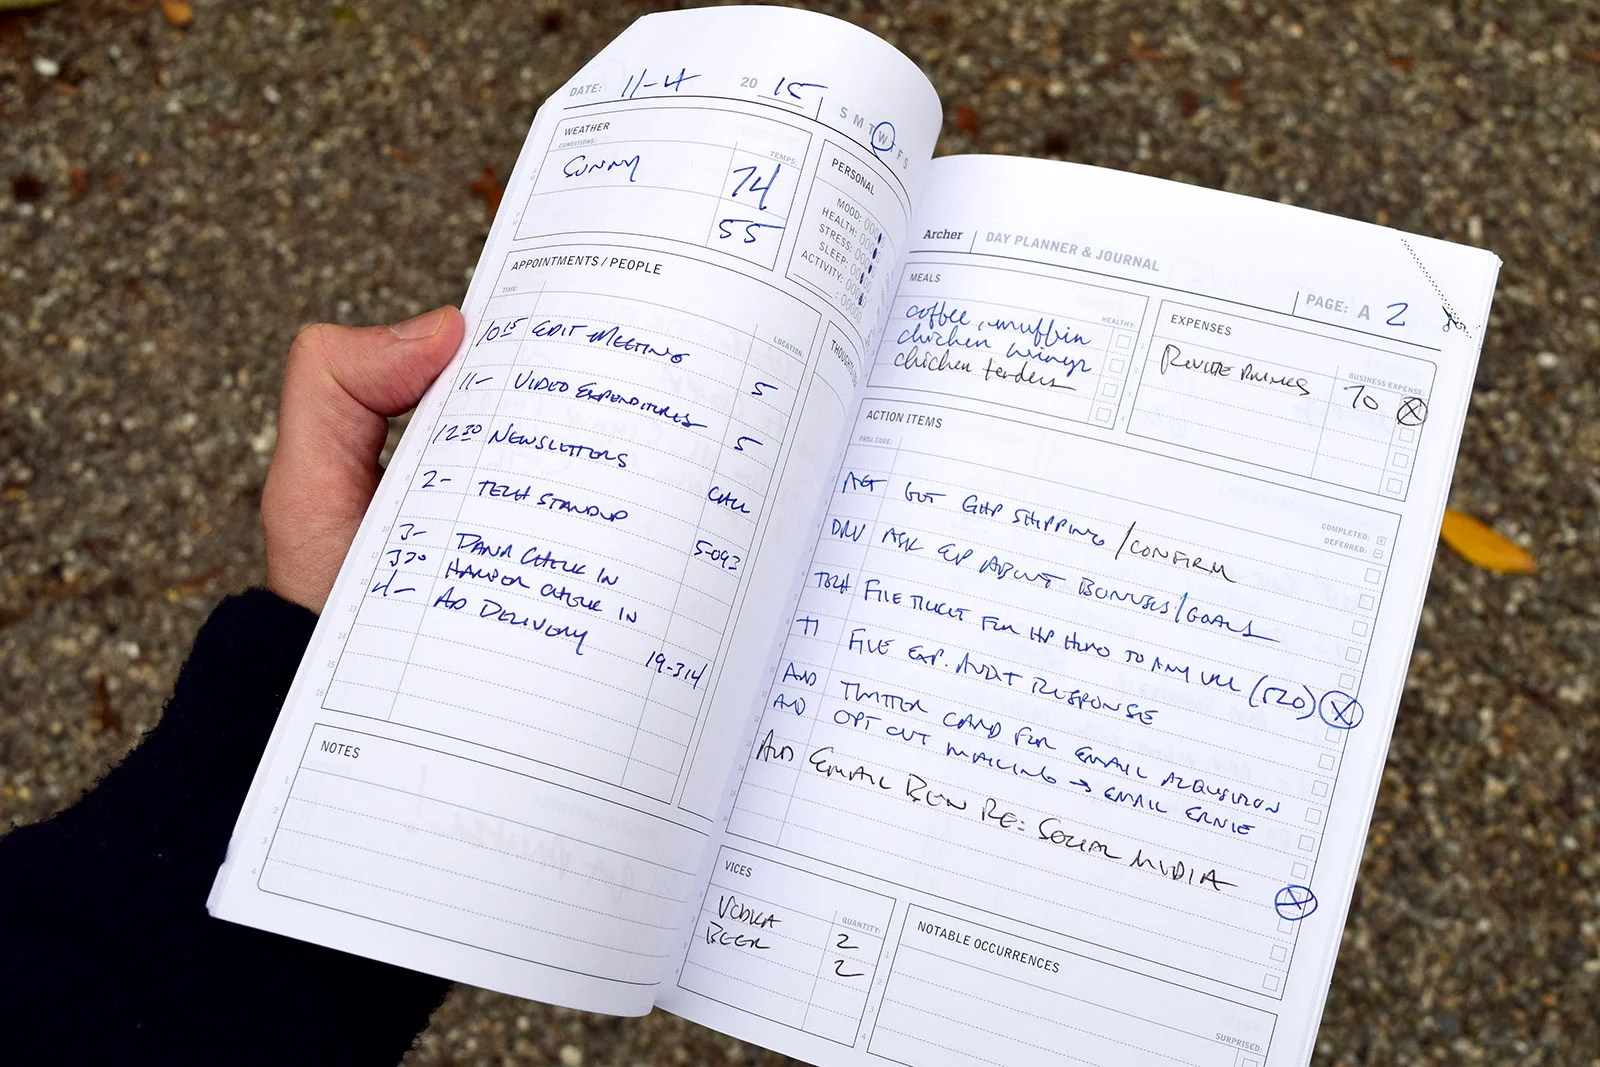 DATE: 11-4 2015 S M T W T F S
WEATHER
CONDITIONS: TEMPS:
Sunny 74
55
PERSONAL
MOOD:
HEALTH:
STRESS:
SLEEP:
ACTIVITY:
APPOINTMENTS / PEOPLE
TIME: LOCATION:
10 15 EDIT MEETING 5
11- VIDEO EXPENDITURES 5
12 30 NEWSLETTERS CALL
2- TECH STANDUP 5-093
3- DANA CHECK IN
3 30 HARPER CHECK IN
4- AD DELIVERY 19-314
NOTES
Archer | DAY PLANNER & JOURNAL
PAGE: A 2
MEALS
HEALTHY:
coffee, muffin
chicken wings
chicken tenders
EXPENSES
BUSINESS EXPENSE:
70
ACTION ITEMS
PROJ. CODE: COMPLETED:
DEFERRED:
GET SHIPPING / CONFIRM
ASK ABOUT BONUSES/GOALS
TECH FILE TICKET FOR HP TO ANY URL (520)
FILE EXP. AUDIT RESPONSE
AUD TWITTER CARD FOR EMAIL ACQUISITION
AUD OPT OUT MAILING → EMAIL ERNIE
AUD EMAIL BEN RE: SOCIAL MEDIA
VICES
QUANTITY:
VODKA 2
BEER 2
NOTABLE OCCURRENCES
SURPRISED: